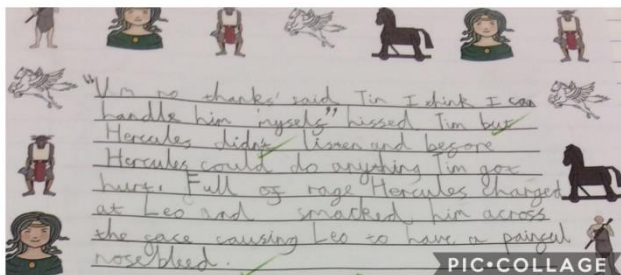 "Um no thanks' said Tim I think I can
handle him 'myself" hissed Tim but
Hercules didnt listen and before
Hercules could do anything Tim got
hurt. Full of rage Hercules charged
at Leo and smacked him across
the face causing Leo to have a painful
nosebleed.
PIC•COLLAGE